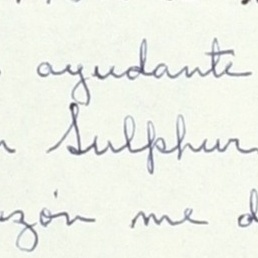 ayudante
n Sulphur,
zón me d